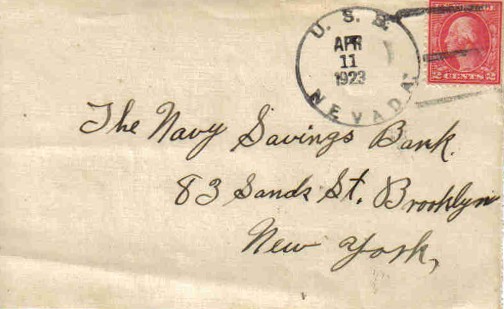 U. S. S.
APR
11
1923
NEVADA
2 CENTS 2
The Navy Savings Bank.
83 Sands St. Brooklyn
New York,